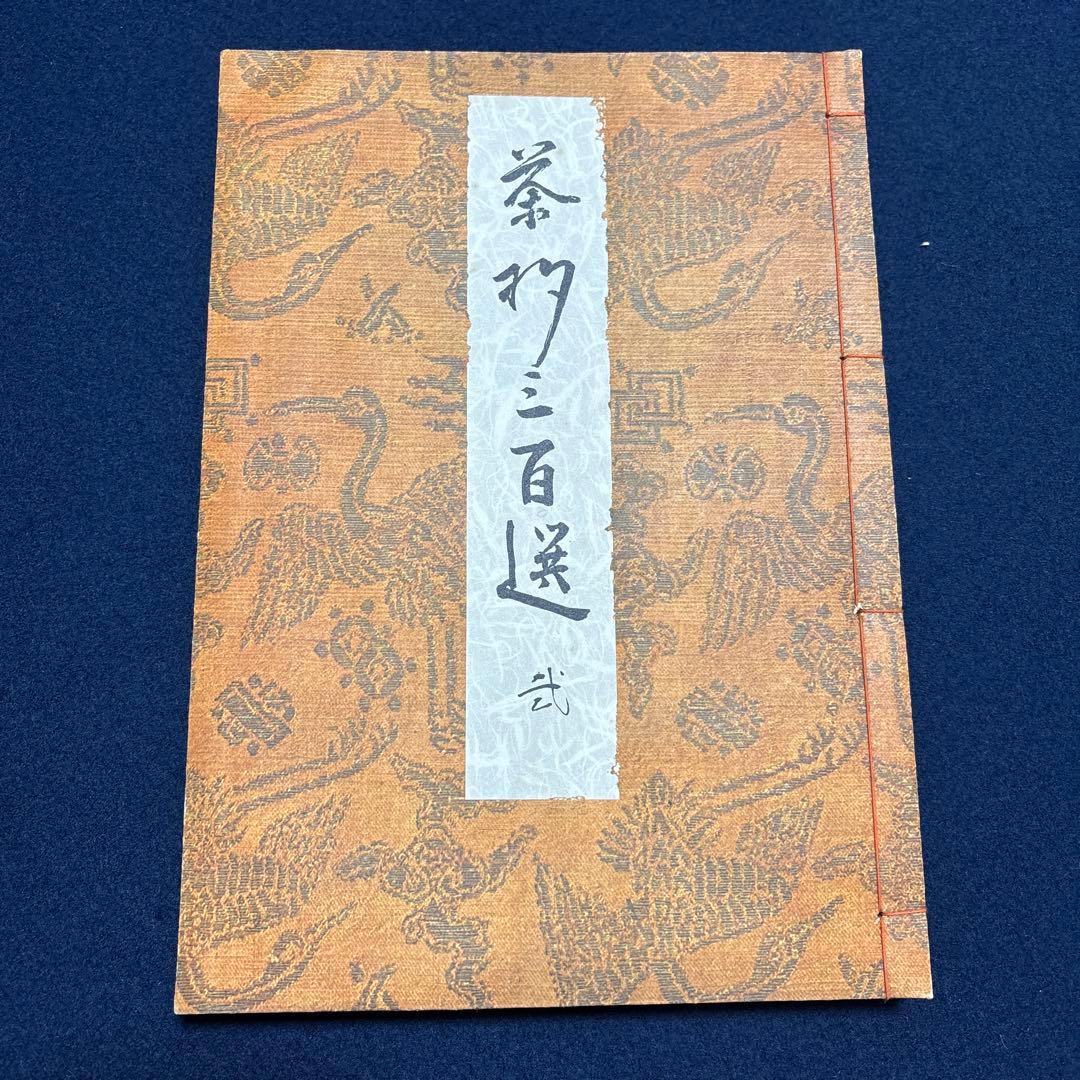 茶杓三百選 弐